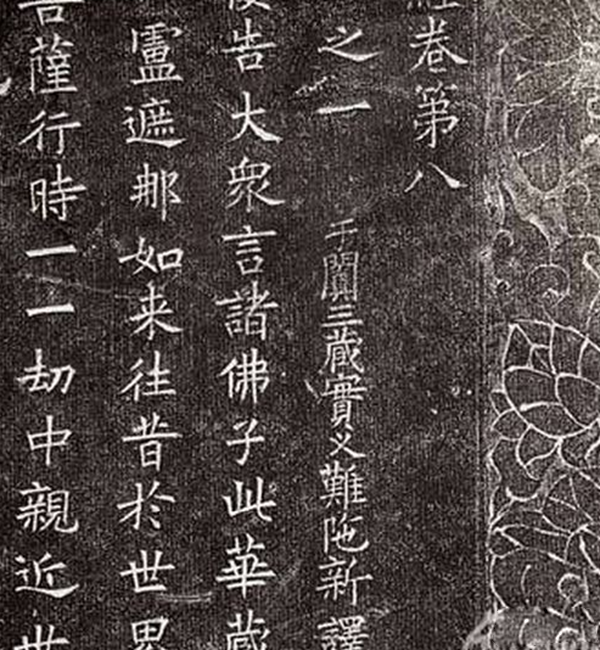 經卷第八
之一 于闐三藏實叉難陁新譯
復告大衆言諸佛子此華藏
盧遮那如来往昔於世界
菩薩行時一一劫中親近世